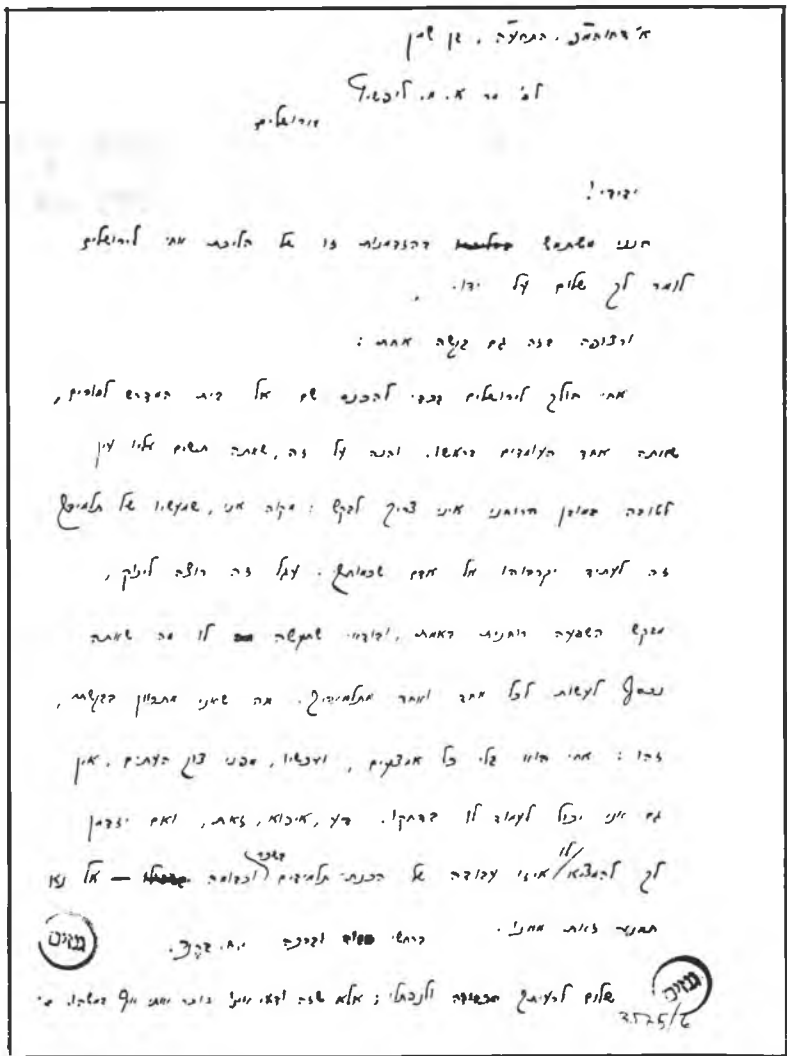 א׳ דחוהמ״פ, התרע״ה, בן שמן
לכ׳ מר א. מ. ליפשיץ
בירושלים
ידידי!
הנני משתמש בהזדמנות זו של הליכת אחי לירושלים
לומר לך שלום על ידו.
ורצופה בזה גם בקשה אחת:
אחי הולך לירושלים בכדי להכנס שם אל בית המדרש למורים,
שאתה אחד העומדים בראשו. והנה על זה, שאתה תשים אליו עין
לטובה במובן הרוחני איני צריך לבקש: מקוה אני, שמעשיו של תלמידך
זה לעתיד יקרבוהו אל אדם שכמותך. עגל זה רוצה לינוק,
מבקש השפעה רוחנית באמת, ובודאי שתעשה לו מה שאתה
נכסף לעשות לכל אחד ואחד מתלמידיך. מה שאני מתכוון בבקשתי,
זהו: אחי הוא בלי כל אמצעים, ועכשיו, מפני צוק העתים, אין
גם אני יכול לעמוד לו בדחקו. דע, איפוא, זאת, ואם יזדמן
לך להמציא לו איזו עבודה של הכנת תלמידים בשכר וכדומה — אל נא
תמנע זאת ממנו. ברחשי וברכה י.ח. ברנר.
שלום לרעיתך ולנפתלי; אלא שזה ודאי אינו זוכר אותי אף במשהו.
גנזים
גנזים